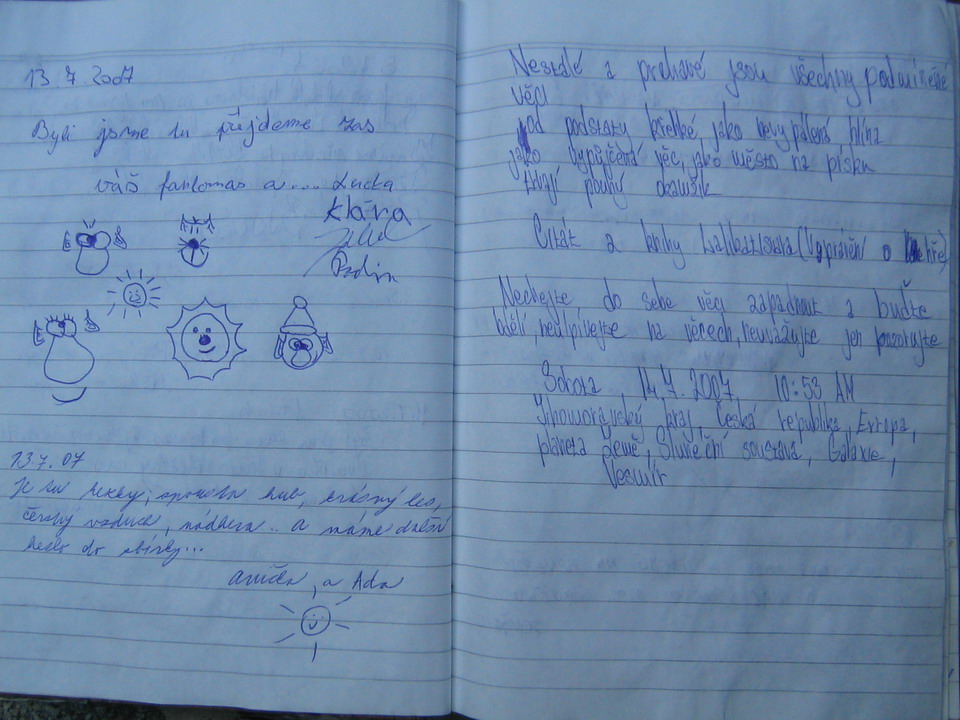 13.7.2007
Byli jsme tu přijdeme zas
váš fantomas a.... Lucka
Klára
13.7.07
Je tu hezky, spousta hub, krásný les,
čerstvý vzduch, nádhera.. a máme další
do sbírky...
a Ada
Nestálé a prchavé jsou všechny podmíněné
věci
od podstaty křehké, jako nevypálená hlína
jako vypůjčená věc, jako město na písku
trvají pouhý okamžik
Citát z knihy Lalitavistara (Vyprávění o
Nechejte do sebe věci zapadnout a buďte
bdělí, neulpívejte na věcech, neuvažujte jen pozorujte
Sobota 14.7.2007 10:53 AM
Jihomoravský kraj, Česká republika, Evropa,
planeta Země, Sluneční soustava, Galaxie,
Vesmír